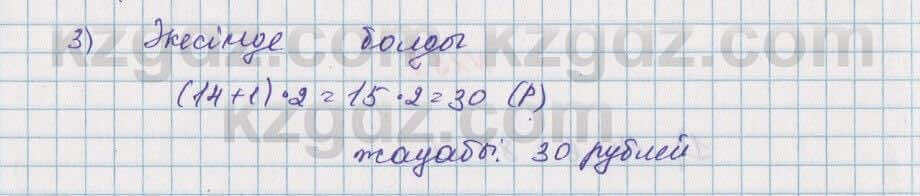 3) Әкесінде болды
(14+1)·2=15·2=30 (Р)
жауабы: 30 рублей
kzgdz.com kzgdz.com
kzgdz.com